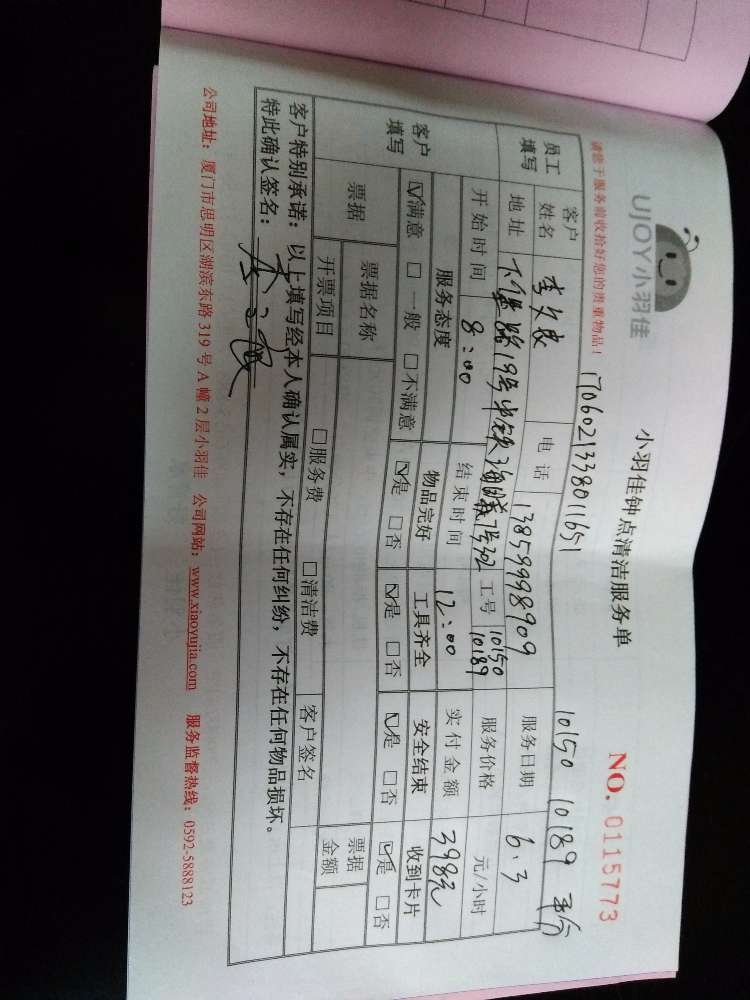 UJOY小羽佳
小羽佳钟点清洁服务单
NO. 0115773
请您于服务前收拾好您的贵重物品!
1706021338011651
10150 10189
员工填写
客户姓名
电话 13859998909
服务日期 6.3
地址 19号中铁 702
工号 10150 10189
服务价格 元/小时
开始时间 8:00
结束时间 12:00
实付金额 398元
客户填写
服务态度 物品完好 工具齐全 安全结束 收到卡片
☑满意 □一般 □不满意 ☑是 □否 ☑是 □否 ☑是 □否 ☑是 □否
票据
票据名称
开票项目 □服务费 □清洁费
客户签名
票据金额
客户特别承诺:以上填写经本人确认属实,不存在任何纠纷,不存在任何物品损坏。
特此确认签名:
公司地址:厦门市思明区湖滨东路319号A幢2层小羽佳 公司网站:www.xiaoyujia.com 服务监督热线:0592-5888123